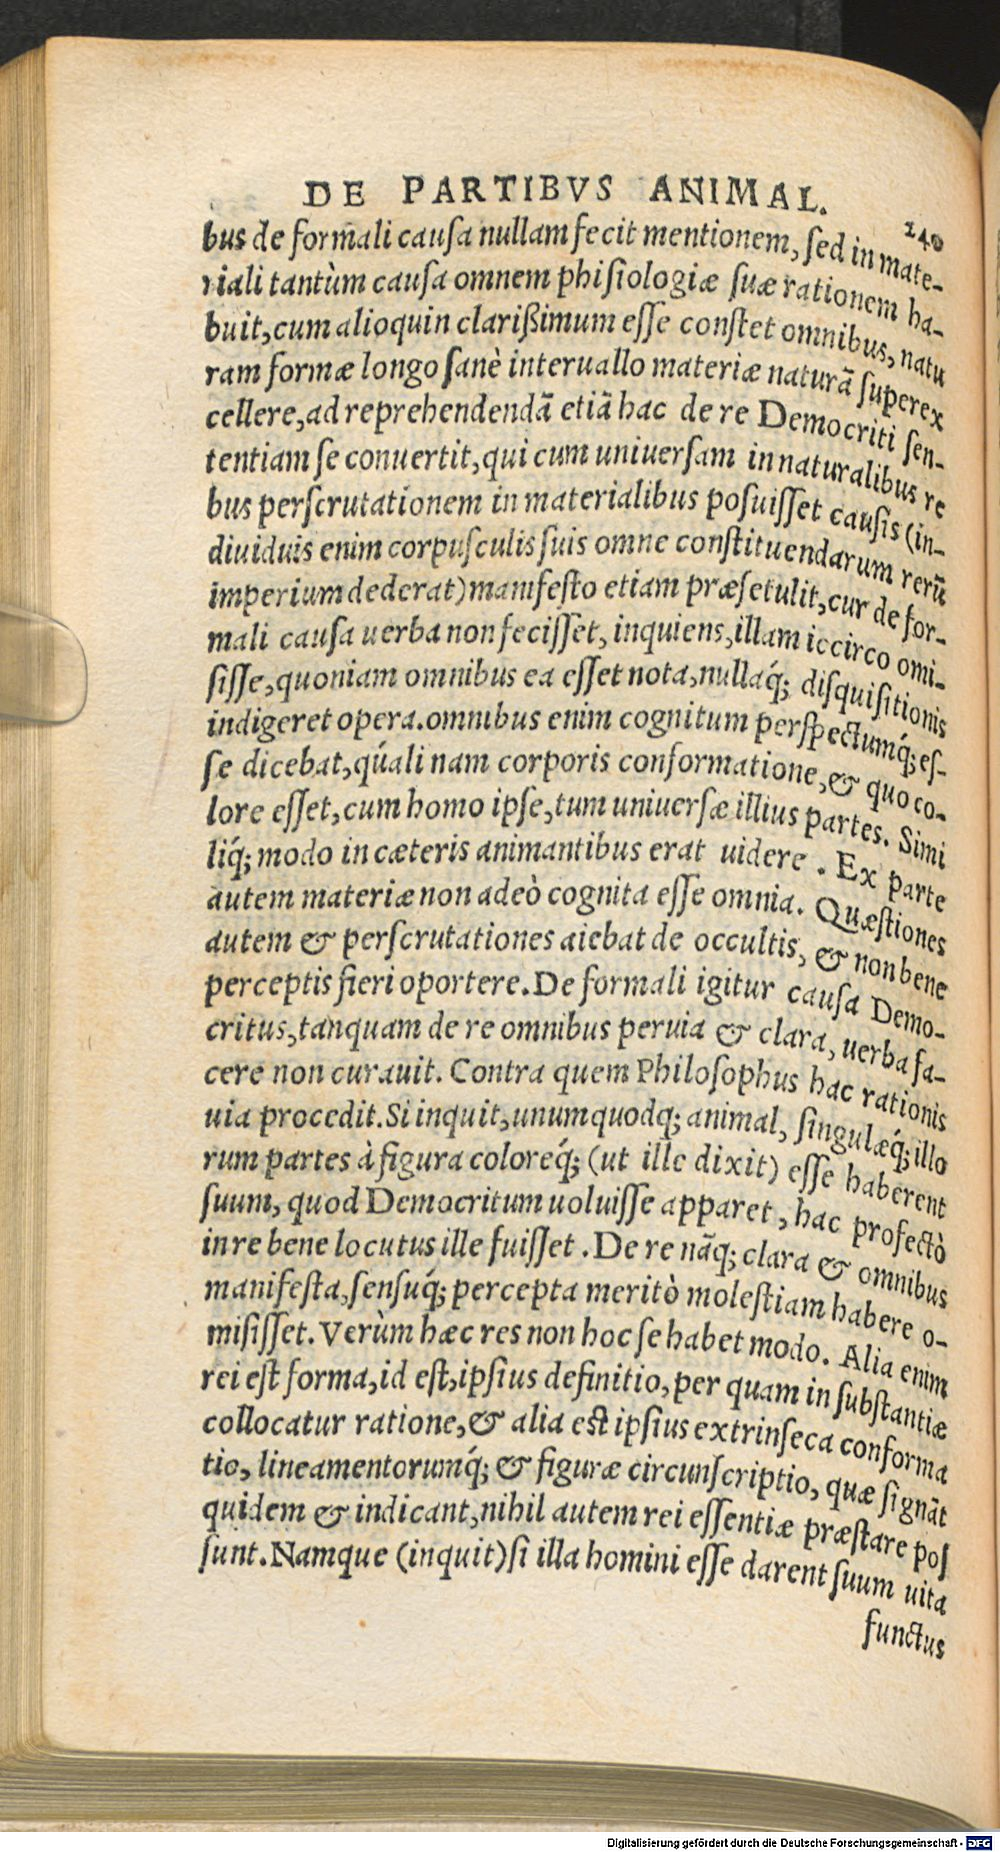 DE PARTIBVS ANIMAL.
240
bus de formali causa nullam fecit mentionem, sed in mate-
riali tantùm causa omnem phisiologiæ suæ rationem ha-
buit, cum alioquin clarißimum esse constet omnibus, natu
ram formæ longo sanè interuallo materiæ naturā superex
cellere, ad reprehendendā etiā hac de re Democriti sen-
tentiam se conuertit, qui cum uniuersam in naturalibus re
bus perscrutationem in materialibus posuisset causis (in-
diuiduis enim corpusculis suis omne constituendarum rerū
imperium dederat) manifesto etiam præsetulit, cur de for-
mali causa uerba non fecisset, inquiens, illam iccirco omi-
sisse, quoniam omnibus ea esset nota, nullaq́; disquisitionis
indigeret opera. omnibus enim cognitum perspectumq́; es-
se dicebat, quáli nam corporis conformatione, & quo co-
lore esset, cum homo ipse, tum uniuersæ illius partes. Simi
liq́; modo in cæteris animantibus erat uidere. Ex parte
autem materiæ non adeò cognita esse omnia. Quæstiones
autem & perscrutationes aiebat de occultis, & non bene
perceptis fieri oportere. De formali igitur causa Demo-
critus, tanquam de re omnibus peruia & clara, uerba fa-
cere non curauit. Contra quem Philosophus hac rationis
uia procedit. Si inquit, unumquodq; animal, singulæq́; illo
rum partes à figura coloreq́; (ut ille dixit) esse haberent
suum, quod Democritum uoluisse apparet, hac profectò
in re bene locutus ille fuisset. De re nāq; clara & omnibus
manifesta, sensuq́; percepta meritò molestiam habere o-
misisset. Verùm hæc res non hoc se habet modo. Alia enim
rei est forma, id est, ipsius definitio, per quam in substantiæ
collocatur ratione, & alia est ipsius extrinseca conforma
tio, lineamentorumq́; & figuræ circunscriptio, quæ signāt
quidem & indicant, nihil autem rei essentiæ præstare pos
sunt. Namque (inquit) si illa homini esse darent suum uita
functus
Digitalisierung gefördert durch die Deutsche Forschungsgemeinschaft - DFG